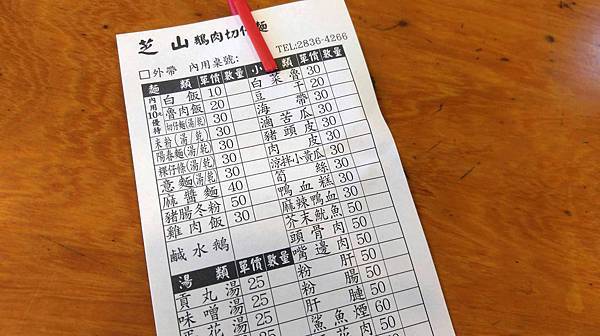 芝山鵝肉切仔麵
TEL:2836-4266
□外帶 內用桌號:
麵類 單價 數量 小 類 單價 數量
內用10元優待
白飯 10
魯肉飯 20
切仔麵(湯/乾) 30
米粉(湯/乾) 30
陽春麵(湯/乾) 30
粿仔條(湯/乾) 30
意麵(湯/乾) 30
麻醬麵 40
豬腸冬粉 50
雞肉飯 30
鹹水鵝
湯類 單價 數量
貢丸湯 25
味噌湯 25
花湯 25
白菜 30
豆干 20
海帶 30
滷苦瓜 30
豬頭皮 30
肉皮 30
涼拌小黃瓜 30
筍絲 30
鴨血糕 30
麻辣鴨血 30
芥末魷魚 50
頭骨肉 50
嘴邊肉 50
粉肝 50
粉腸 50
肝腱 50
鯊魚煙 60
魚 50